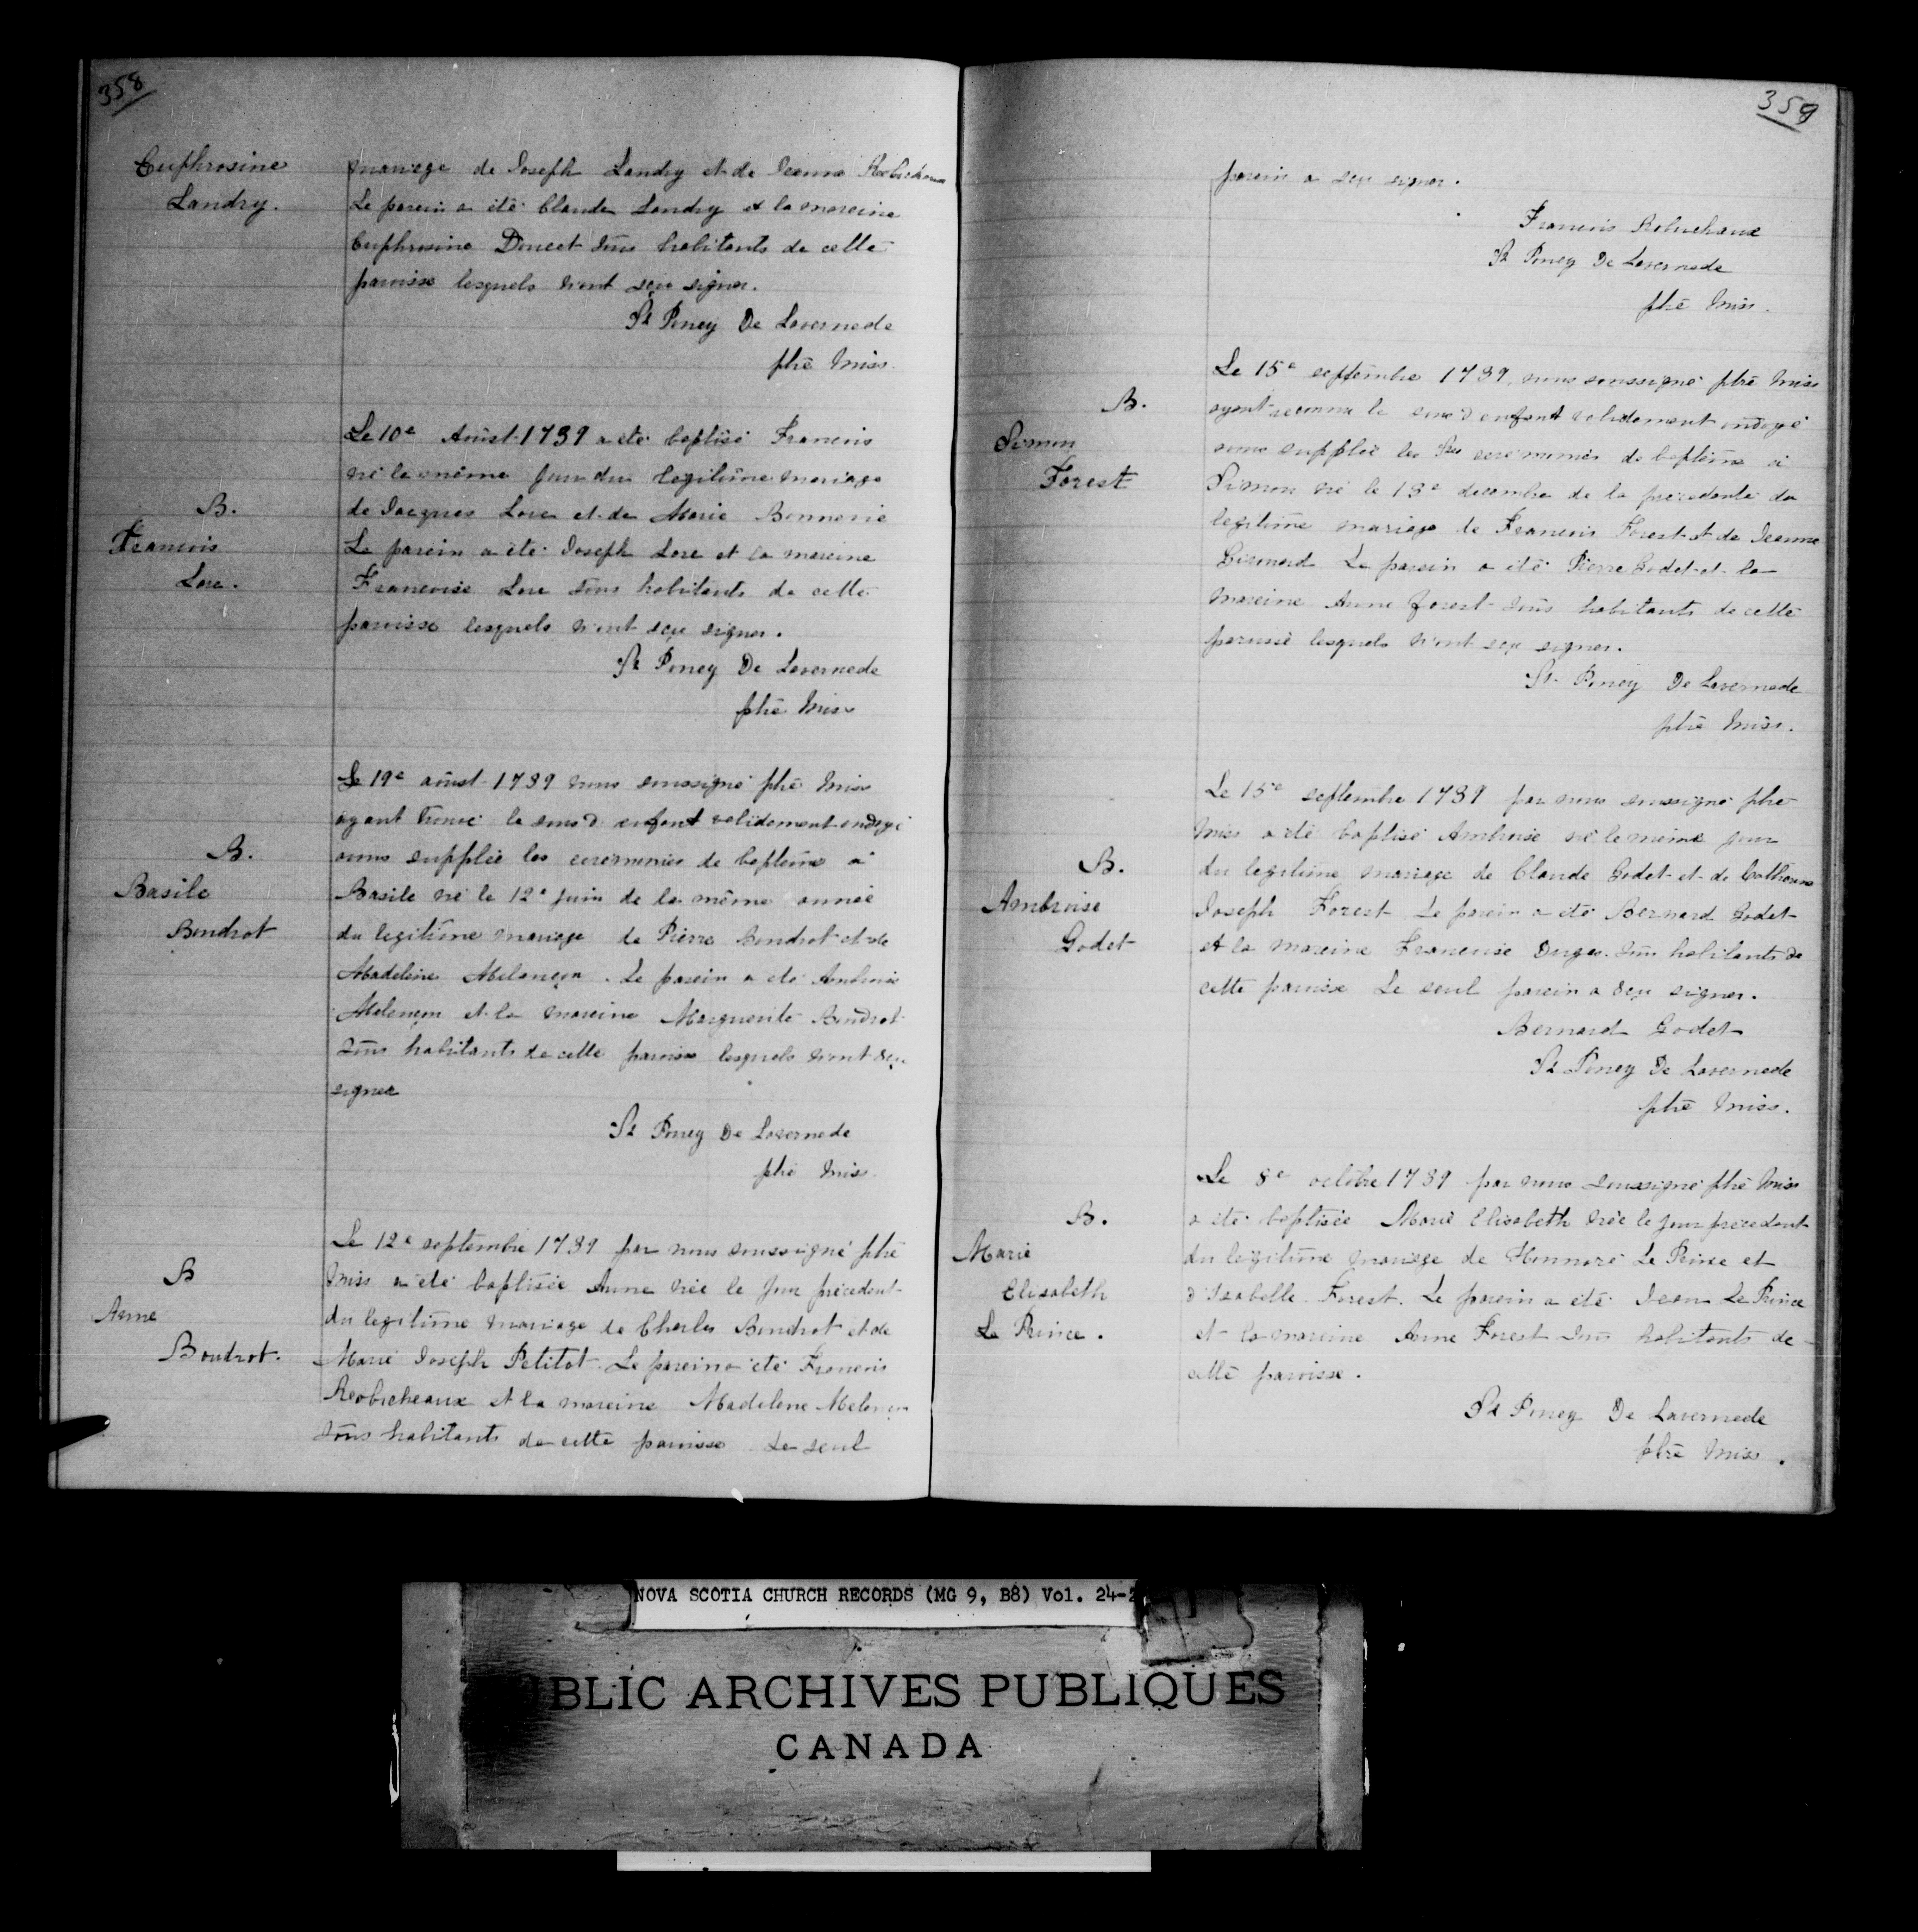 358
Euphrosine
Landry.
mariage de Joseph Landry et de Jeanne Robichaux
Le parein a été Claude Landry et la mareine
Euphrosine Doucet tous habitants de cette
paroisse lesquels n'ont sçu signer.
St Poncy De Lavernede
ptre Miss.
B.
Francois
Lore.
Le 10e Août 1739 a été baptisé Francois
né le même jour du legitime mariage
de Jacques Lore et de Marie Bonnerie
Le parein a été Joseph Lore et la mareine
Francoise Lore tous habitants de cette
paroisse lesquels n'ont sçu signer.
St Poncy De Lavernede
ptre Miss
B.
Basile
Boudrot
Le 19e août 1739 nous soussigné ptre Miss
ayant trouvé le sous d. enfant validement ondoyé
avons supplée les ceremonies de baptême a
Basile né le 12e juin de la même année
du legitime mariage de Pierre Boudrot et de
Madeleine Melançon. Le parein a été Ambroise
Melançon et la mareine Marguerite Boudrot
tous habitants de cette paroisse lesquels n'ont sçu
signer
St Poncy De Lavernede
ptre Miss.
B
Anne
Boudrot.
Le 12e septembre 1739 par nous soussigné ptre
Miss a été baptisée Anne née le jour précedent
du legitime mariage de Charles Boudrot et de
Marie Joseph Petitot. Le parein a été Francois
Robicheaux et la mareine Madelene Melançon
tous habitants de cette paroisse Le seul
359
parein a sçu signer.
Francois Robuchaux
St Poncy De Lavernede
ptre Miss.
B.
Simon
Forest
Le 15e septembre 1739, nous soussigné ptre Miss
ayant reconnu le sous d enfant validement ondoyé
avons supplée les Stes ceremonies de baptême a
Simon né le 13e decembre de la precedente du
legitime mariage de Francois Forest et de Jeanne
Girouard Le parein a été Pierre Godet et la
mareine Anne forest tous habitants de cette
paroisse lesquels n'ont sçu signer.
St Poncy De Lavernede
ptre Miss.
B.
Ambroise
Godet
Le 15e septembre 1739 par nous soussigné ptre
Miss a été baptisé Ambroise né le même jour
du legitime mariage de Claude Godet et de Catherine
Joseph Forest Le parein a été Bernard Godet
et la mareine Francoise Dugas tous habitants de
cette paroisse Le seul parein a sçu signer.
Bernard Godet
St Poncy De Lavernede
ptre Miss.
B.
Marie
Elisabeth
Le Prince.
Le 8e octobre 1739 par nous soussigné ptre Miss
a été baptisée Marie Elisabeth née le jour précedent
du legitime mariage de Honnoré Le Prince et
d'Isabelle Forest. Le parein a été Jean Le Prince
et la mareine Anne Forest tous habitants de
cette paroisse.
St Poncy De Lavernede
ptre Miss.
NOVA SCOTIA CHURCH RECORDS (MG 9, B8) Vol. 24-2
BLIC ARCHIVES PUBLIQUES
CANADA